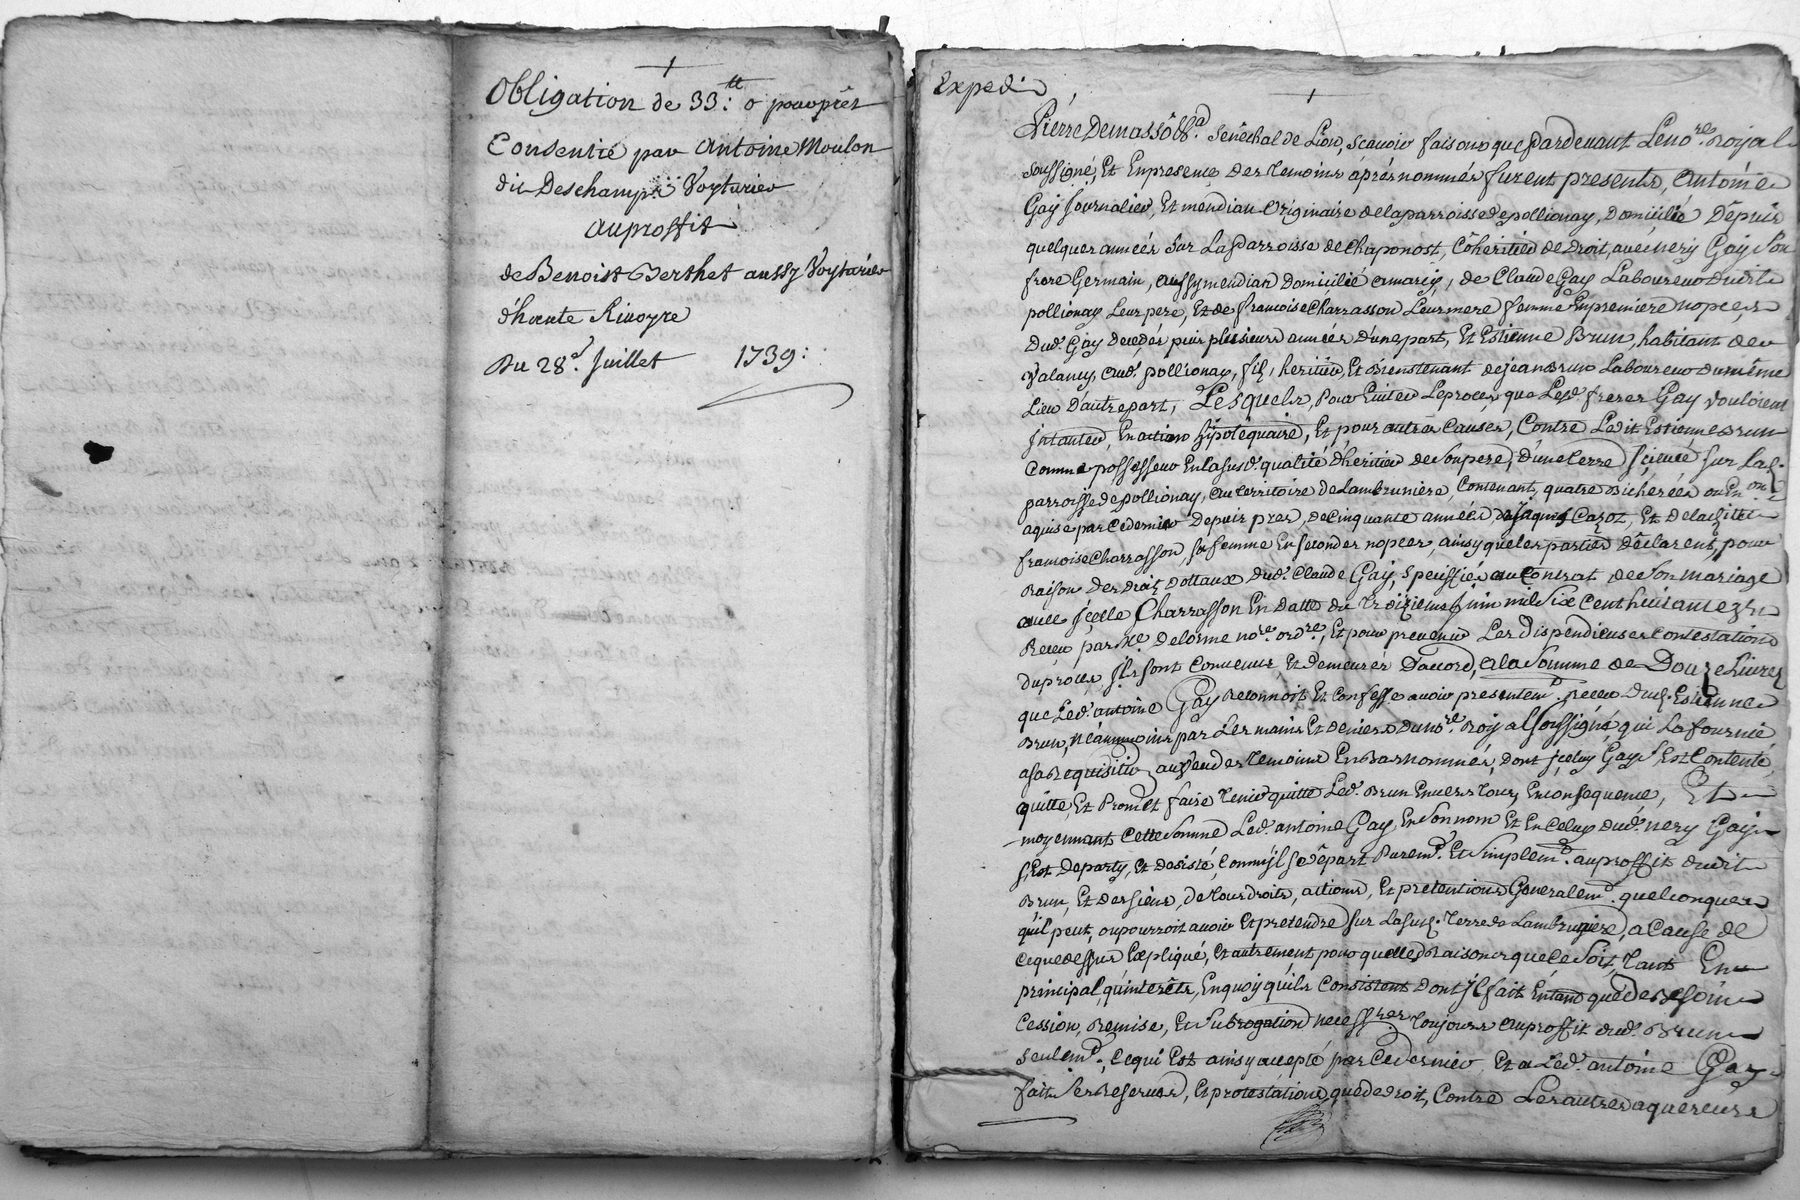 Obligation de 33.tt o pour prêt
Consentie par Antoine Moulon
dit Deschamps Voyturier
au proffit
de Benoist Berthet aussy Voyturier
d'haute Rivoyre
Du 28e. Juillet 1739:
Expedi
Pierre Demasso &a. Senêchal de Lion, sçavoir faisons que Pardevant Le nore. Royal
soussigné, Et En presence des temoins après nommés furent presents, Antoine
Gay journalier, Et mendian originaire de la parroisse de pollionay, Domicilié Dêpuis
quelques années sur La Parroisse de Chaponost, Cohéritier de Droit, avec nery Gay Son
frere Germain, aussy mendian Domicilié a marcy, de Claude Gay Laboureur dudit
pollionay Leur pere, Et de françoise Charrasson Leur mere femme En premiere nopces
dud. Gay decedés puis plusieurs années D'une part, Et Estienne Brun, habitant de
Valancy, aud. pollionay, fils, heritier, Et Bienstenant de jean Brun Laboureur du même
Lieu D'autre part, Lesquels, Pour Eviter Le procès que Lesd. freres Gay vouloient
Intanter, En action hipotequaire, Et pour autres Causes, Contre Ledit Estienne Brun
Comme possesseur En la susd. qualité d'heritier de Son pere, d'une terre scituée sur lad.
parroisse de pollionay, au territoire de Lambruniere, Contenant, quatre Bicherées ou Enon.
aquise par Ce dernier Depuis pres, de Cinquante années de jaques Cazot, Et de lad.
françoise Charrasson, sa femme En secondes nopces, ainsy que les parties dêclarent, pour
Raison des droits dottaux dud. Claude Gay, speciffiés au Contrat de Son mariage
avec Icelle Charrasson En datte du troizieme juin mil Six Cent huitante
Receu par Me. Delorme nore. ordre, Et pour prevenir Les dispendieuses Contestations
du procès Ils sont Convenus, Et Demeurés D'accord, a la Somme de Douze Livres
que Led. antoine Gay Reconnoit Et Confesse avoir presentemt. receu dud. Estienne
Brun, néanmoins par Les mains Et deniers du nore. Royal Soussigné qui La fournie
a sa Requisition au veu des temoins En Bas nommés, dont jceluy Gay s'Est Contenté,
quitte, Et Promet faire tenir quitte Led. Brun Envers tous, En consequence, Et
moyennant Cette Somme Led. antoine Gay, En Son nom Et En Celuy dud. nery Gay
s'Est Departy, Et desisté, Comm'jl se dêpart Puremt. Et Simplemt. au proffit dudit
Brun, Et des siens, de tous droits, actions, Et pretentions Generalemt. quelconques
qu'il peut, ou pourroit avoir Et pretendre sur La susd. terre de Lambruniere, a Cause de
Ce que dessus Expliqué, Et autrement pour quelles Raisons que Ce Soit, tant En
principal, qu'interêts, En quoy qu'ils Consistent dont jl fait Entant que de Besoin
Cession, Remise, Et Subrogation necessres. toujours au proffit dud. Brun
seulemt., Ce qui Est ainsy accepté par Ce dernier Et a Led. antoine Gay
fait Ses Reserves, Et protestations que de droit, Contre Les autres aquereurs